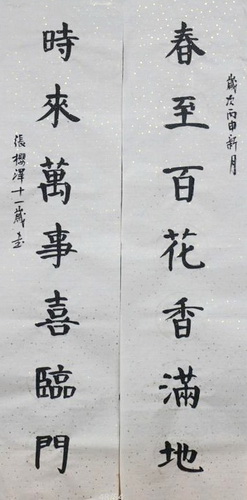 歲次丙申新月
春至百花香滿地
時來萬事喜臨門
張櫻澤十一歲書